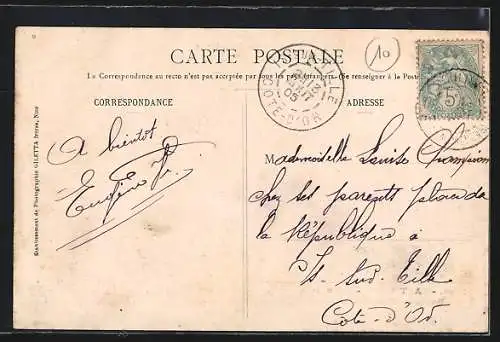 10
CARTE POSTALE
La Correspondance au recto n'est pas acceptée par tous les pays étrangers. (Se renseigner à la Poste
CORRESPONDANCE
ADRESSE
A bientôt
Eugénie
Mademoiselle Louise Champion
chez ses parents place de
la République à
Is-sur-Tille
Côte-d'Or.
VILLE
05
COTE-D'OR
5
Etablissement de Photographie GILETTA frères, Nice